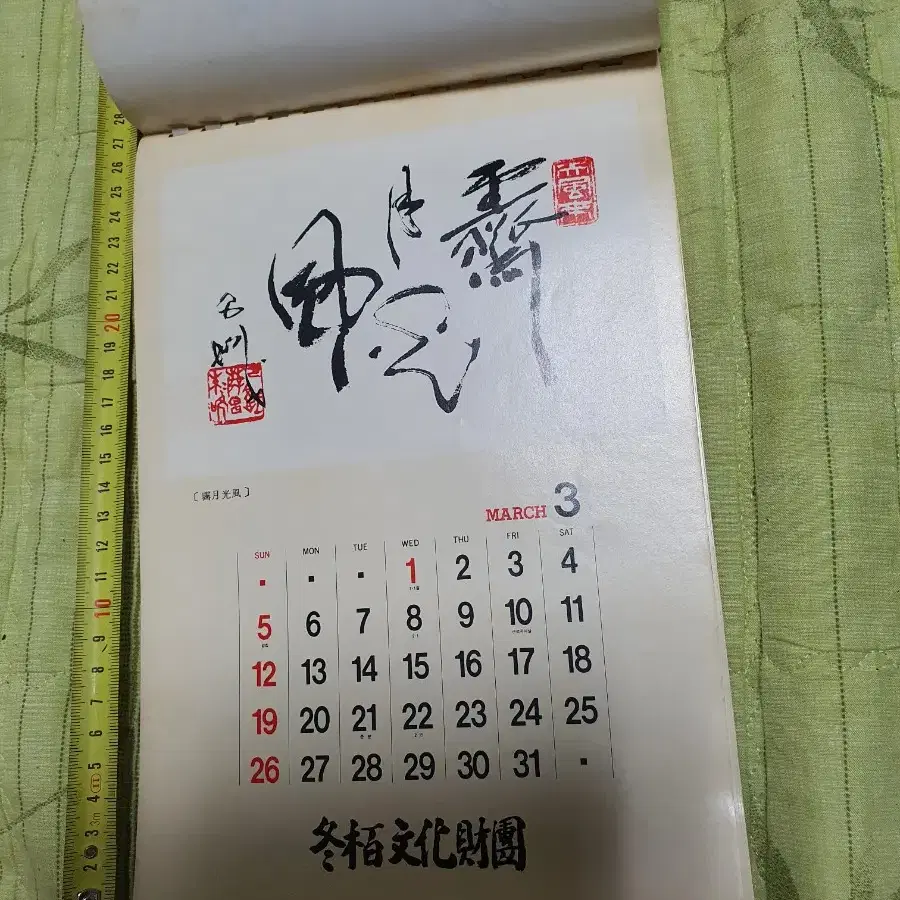 霽月光風
〔霽月光風〕
MARCH 3
SUN MON TUE WED THU FRI SAT
1 2 3 4
5 6 7 8 9 10 11
12 13 14 15 16 17 18
19 20 21 22 23 24 25
춘분
26 27 28 29 30 31
冬栢文化財團
28 27 26 25 24 23 22 21 20 19 18 17 16 15 14 13 12 11 10 9 8 7 6 5 4 3m 3 2